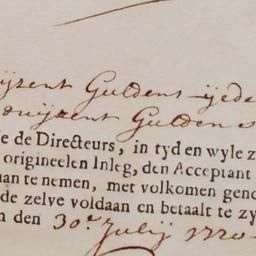 ijzent Guldens ijede
duijzent Gulden
e de Directeurs, in tyd en wyle z
origineelen Inleg, den Acceptant
aan te nemen, met volkomen geno
de zelve voldaan en betaalt te zy
n den 30.e Julij 1720